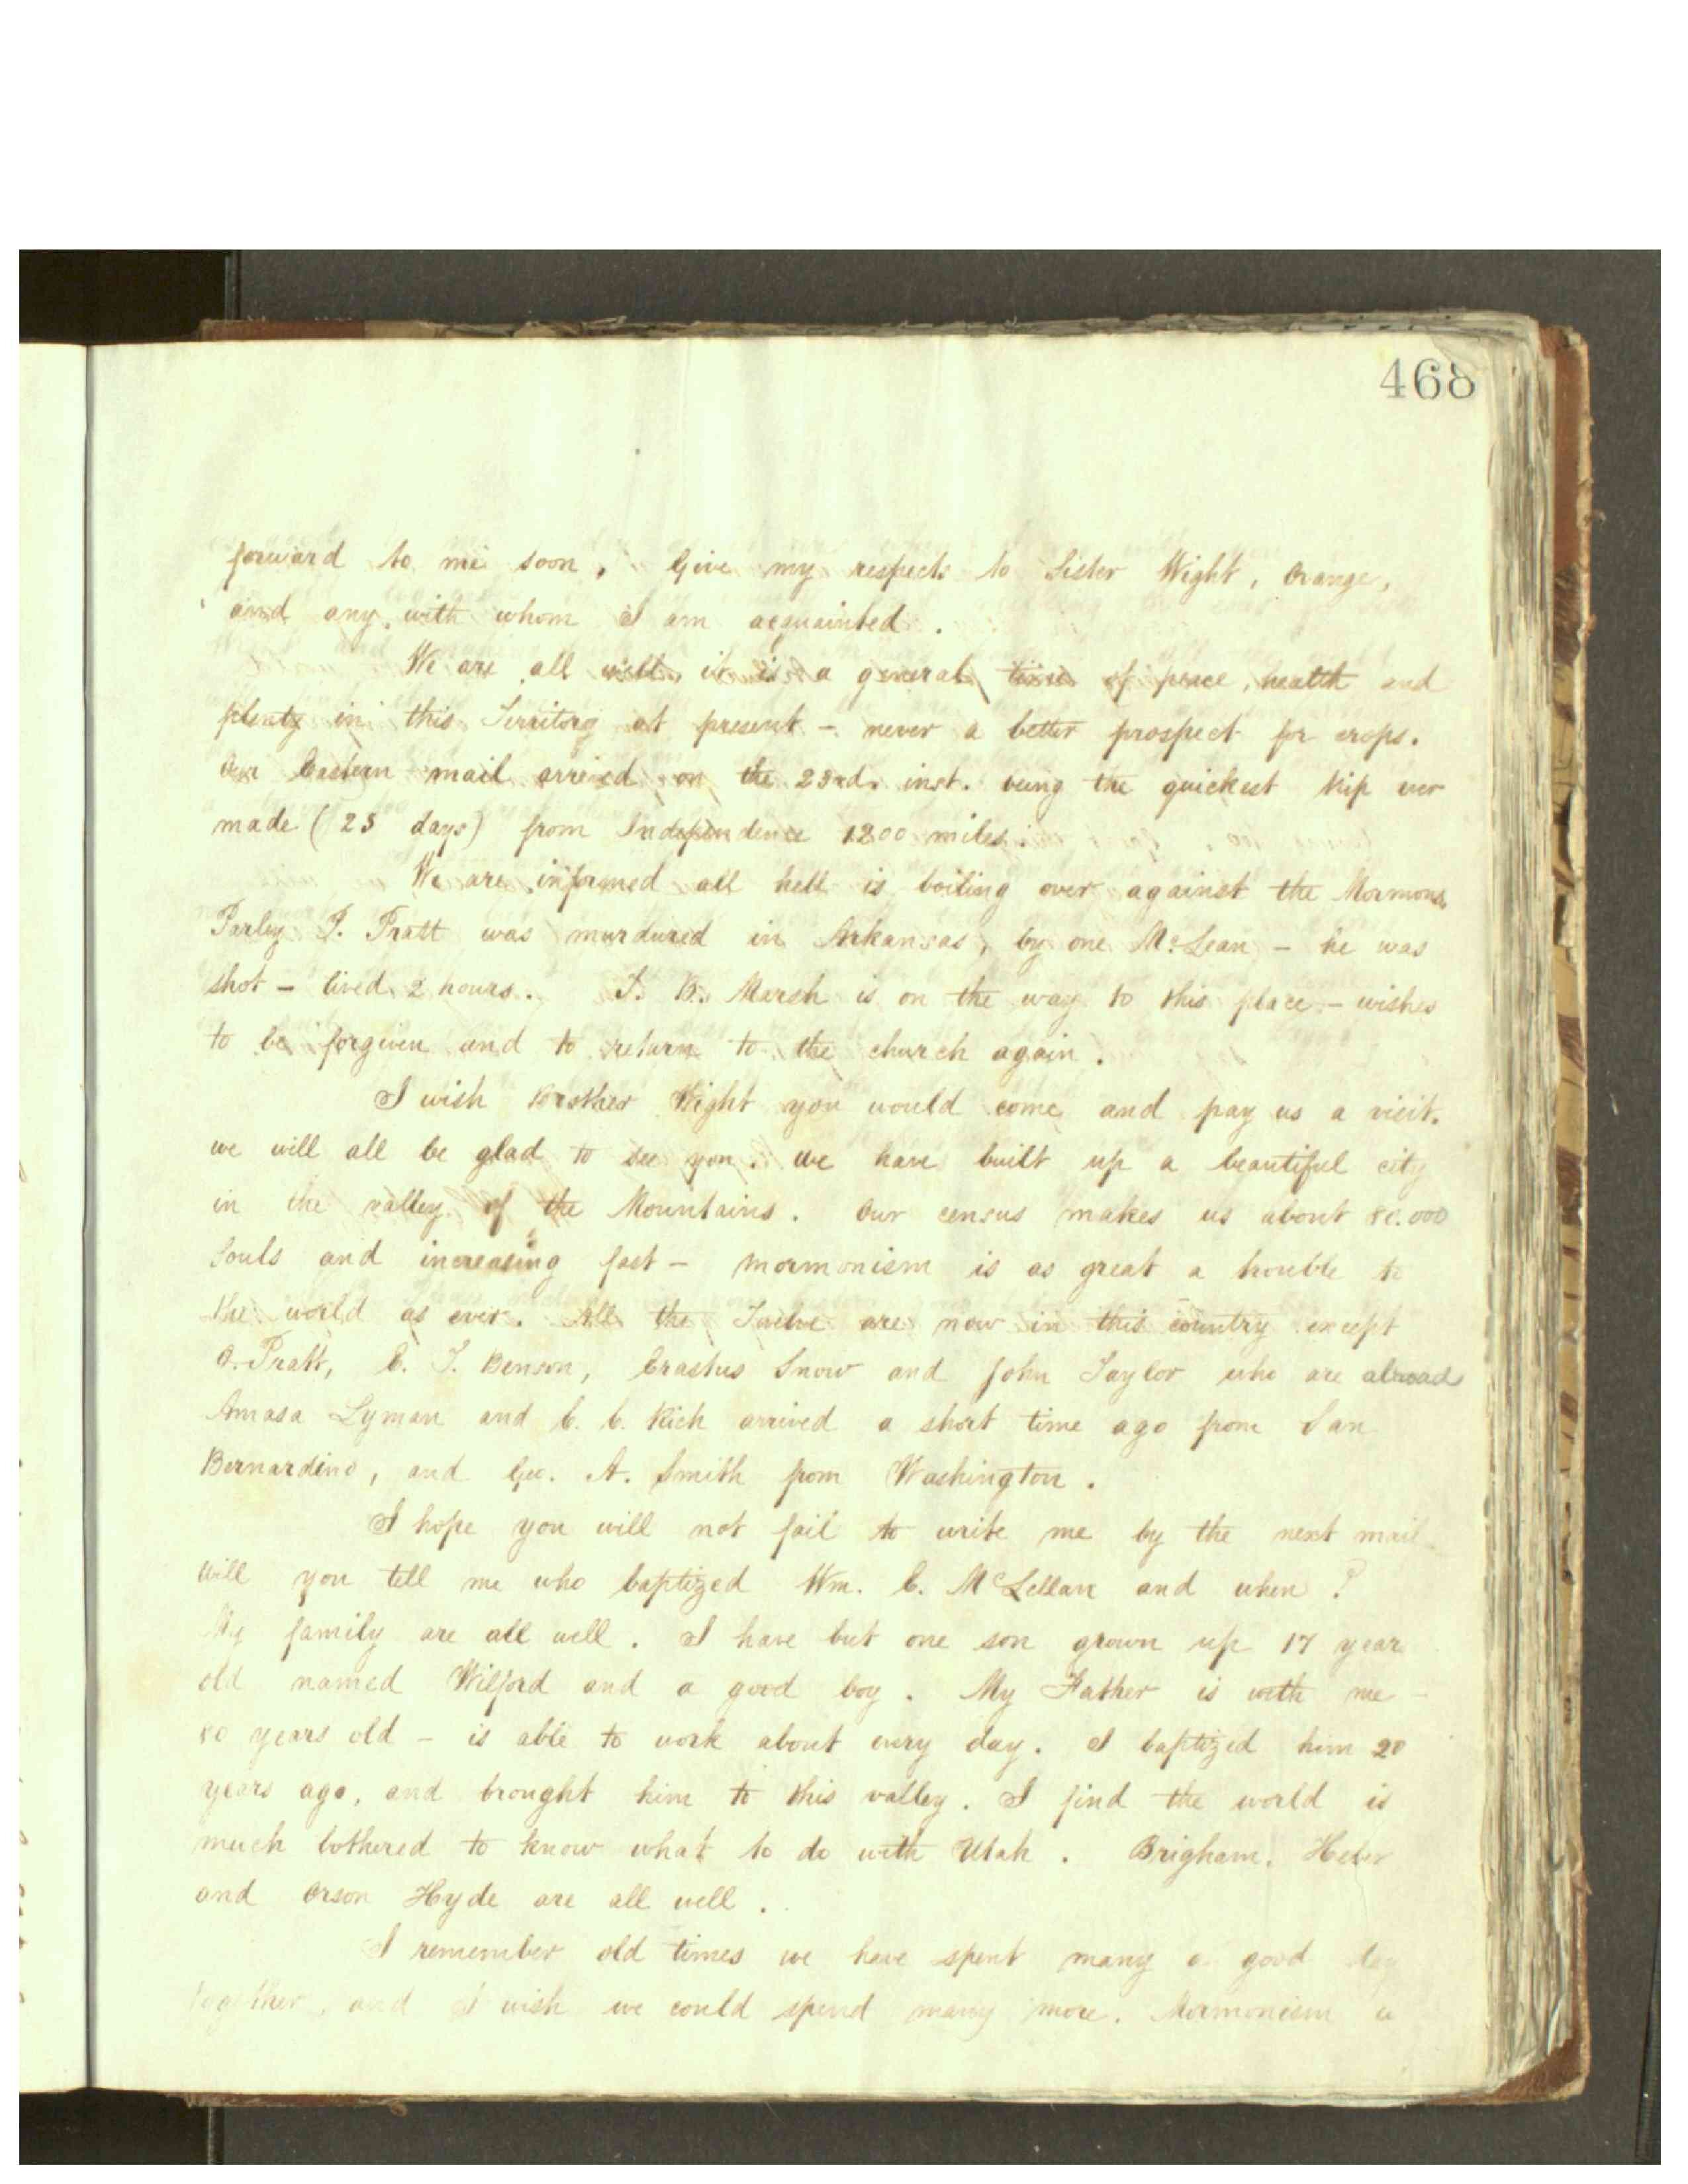 468
forward to me soon. Give my respects to Sister Wight, Orange,
and any with whom I am acquainted.
We are all well, it is a general time of peace, health and
plenty in this Territory at present – never a better prospect for crops.
Our Eastern mail arrived on the 23rd. inst. being the quickest trip ever
made (23 days) from Independence 1200 miles.
We are informed all hell is boiling over against the Mormons
Parley P. Pratt was murdured in Arkansas, by one McLean – he was
shot – lived 2 hours. T. B. Marsh is on the way to this place – wishes
to be forgiven and to return to the church again.
I wish Brother Wight you would come and pay us a visit.
we will all be glad to see you. we have built up a beautiful city
in the valley of the Mountains. Our census makes us about 80.000
Souls and increasing fast – mormonism is as great a trouble to
the world as ever. All the Twelve are now in this country except
O. Pratt, E. T. Benson, Erastus Snow and John Taylor who are abroad
Amasa Lyman and C. C. Rich arrived a short time ago from San
Bernardino, and Geo. A. Smith from Washington.
I hope you will not fail to write me by the next mail
Will you tell me who baptized Wm. E. McLellan and when?
My family are all well. I have but one son grown up 17 year
old named Wilford and a good boy. My Father is with me –
80 years old – is able to work about every day. I baptized him 20
years ago, and brought him to this valley. I find the world is
much bothered to know what to do with Utah. Brigham, Heber
and Orson Hyde are all well.
I remember old times we have spent many a good day
together, and I wish we could spend many more. Mormonism is